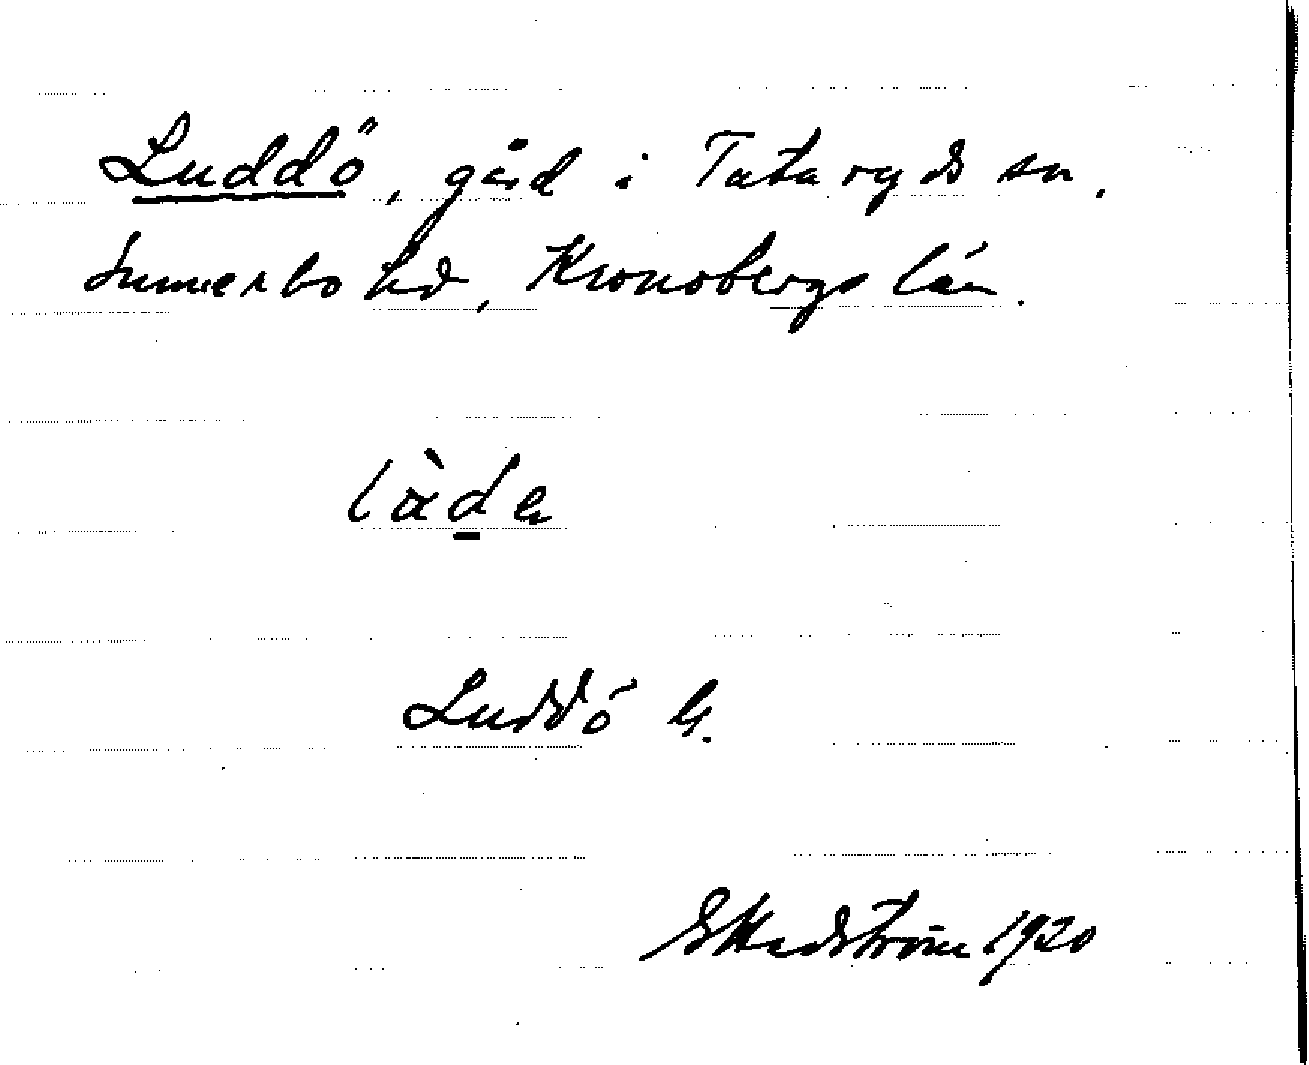 Luddö, gård i Tutaryds sn.
Sunnerbo hd, Kronobergs län.
làde
Luddö G.
G Hedström 1920